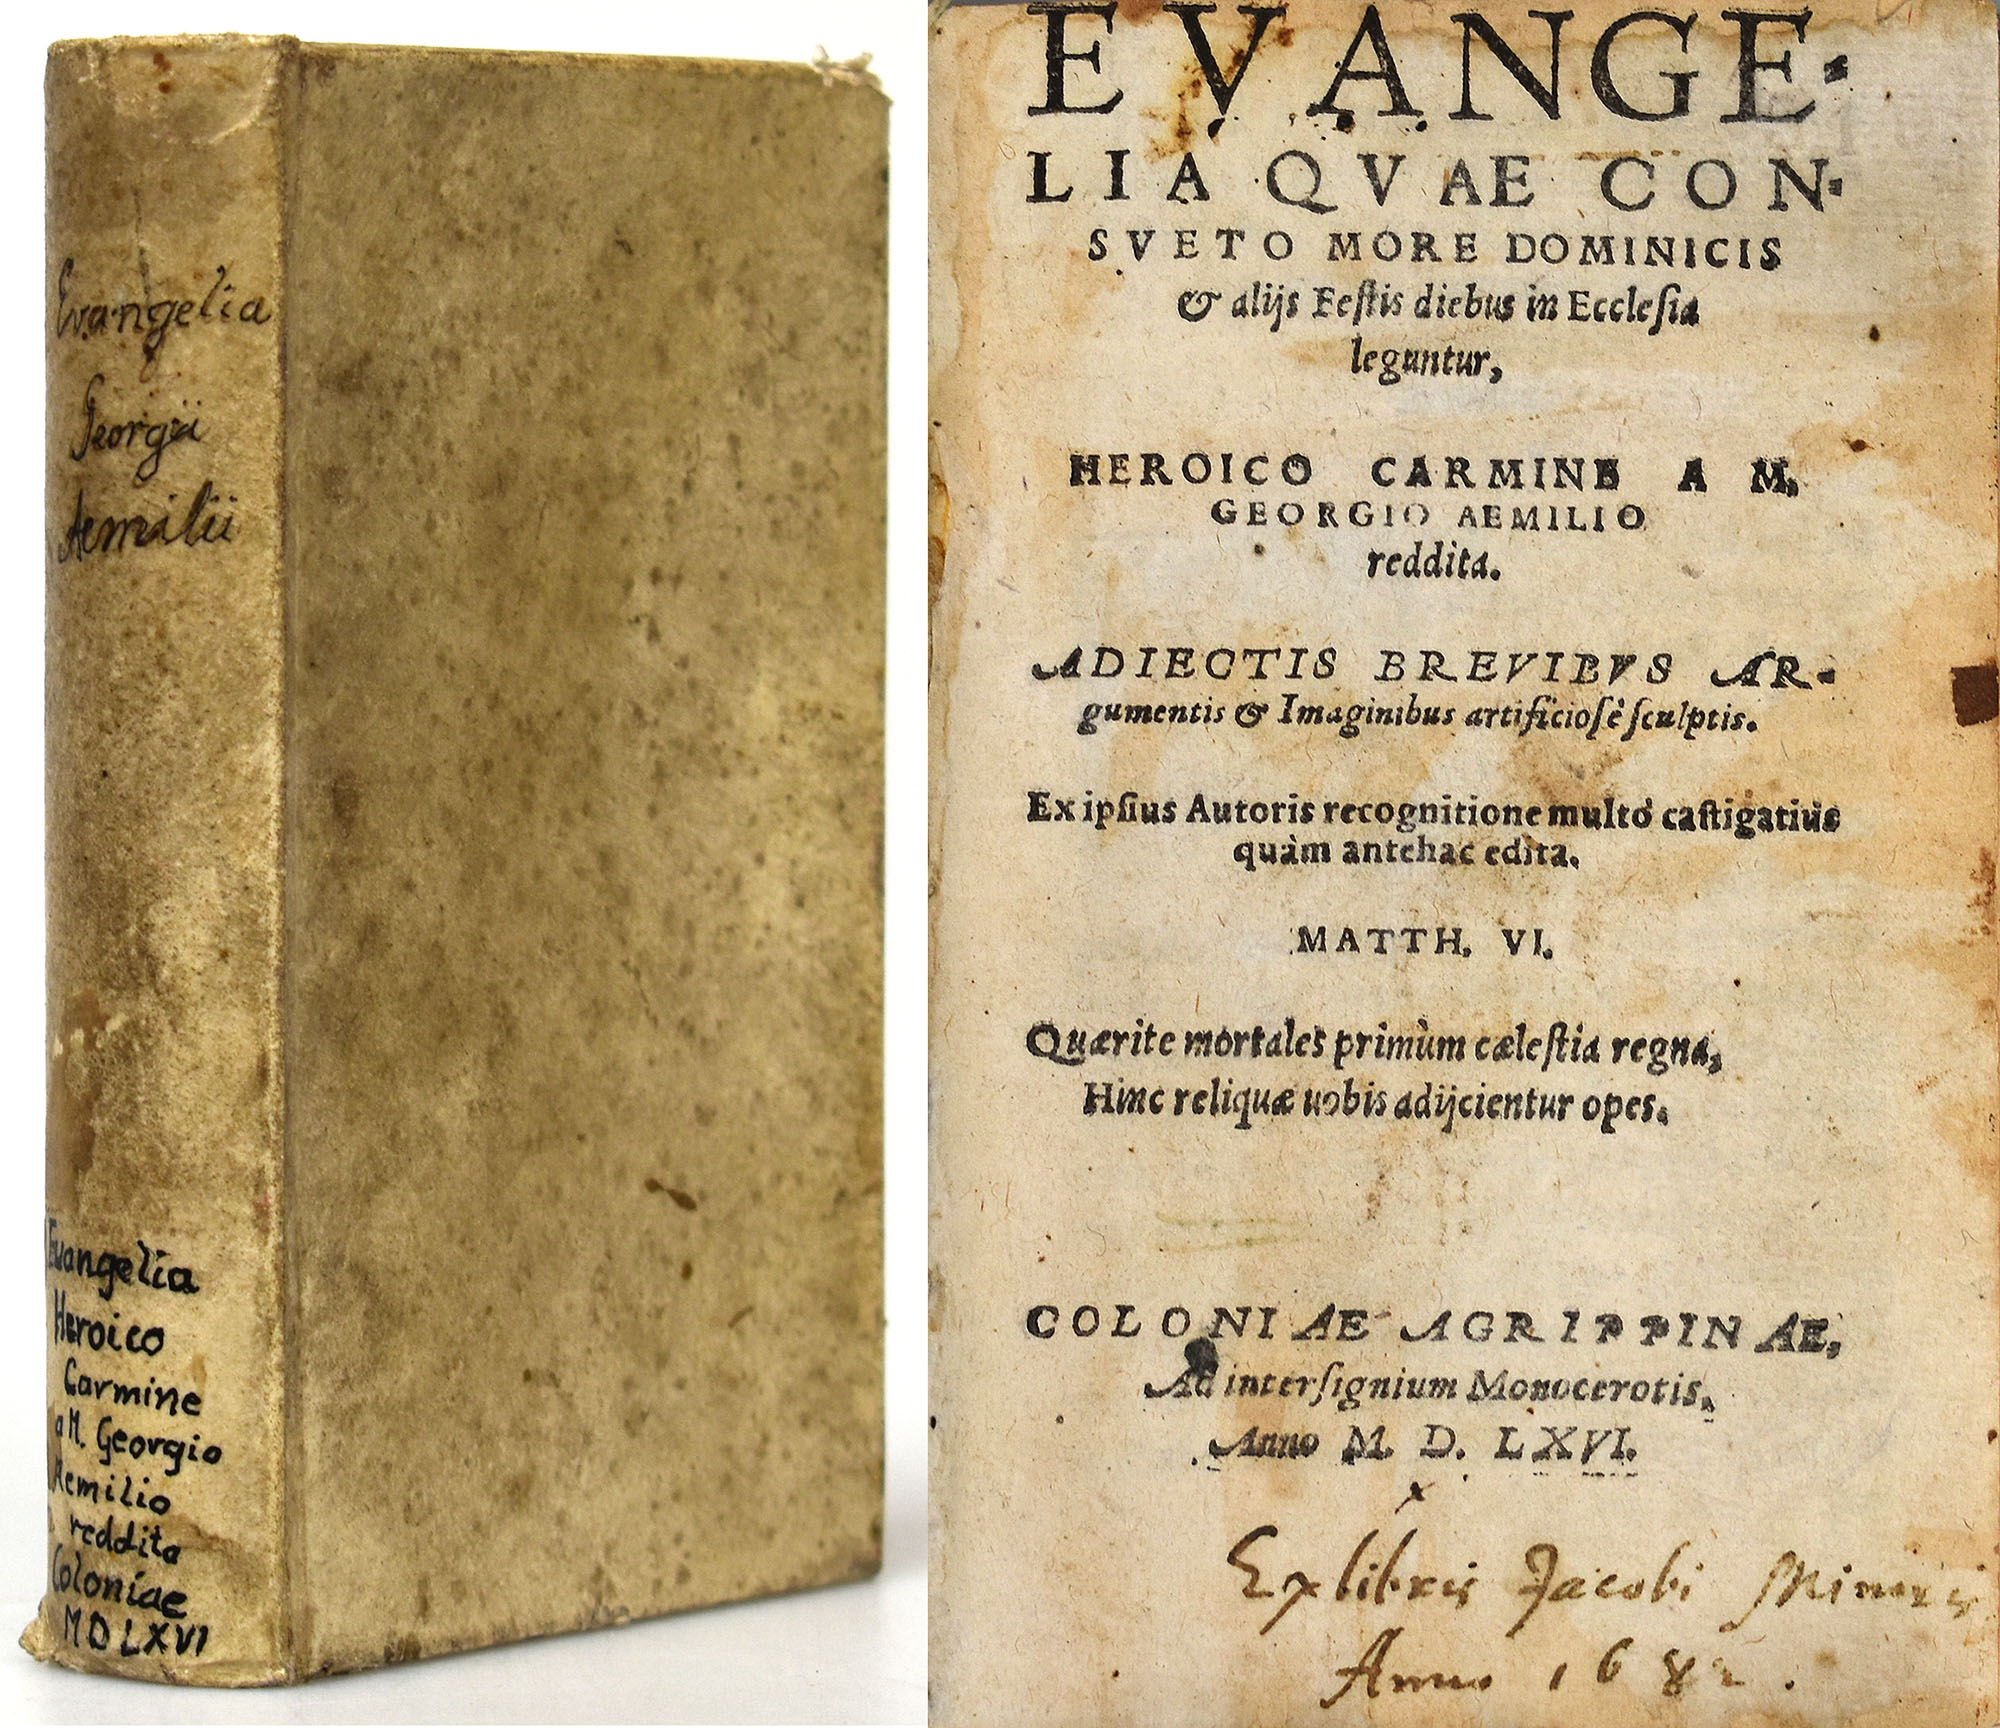 Evangelia
Georgii
Aemilii
Evangelia
Heroico
Carmine
a M. Georgio
Aemilio
reddita
Coloniae
MDLXVI
EVANGE-
LIA QVAE CON-
SVETO MORE DOMINICIS
& alijs Festis diebus in Ecclesia
leguntur,
HEROICO CARMINE A M.
GEORGIO AEMILIO
reddita.
ADIECTIS BREVIBVS AR-
gumentis & Imaginibus artificiosè sculptis.
Ex ipsius Autoris recognitione multò castigatiùs
quàm antehac edita.
MATTH. VI.
Quærite mortales primùm cælestia regna,
Hinc reliquæ uobis adijcientur opes.
COLONIAE AGRIPPINAE,
Ad intersignium Monocerotis,
Anno M. D. LXVI.
Ex libris Jacobi
Anno 1682.